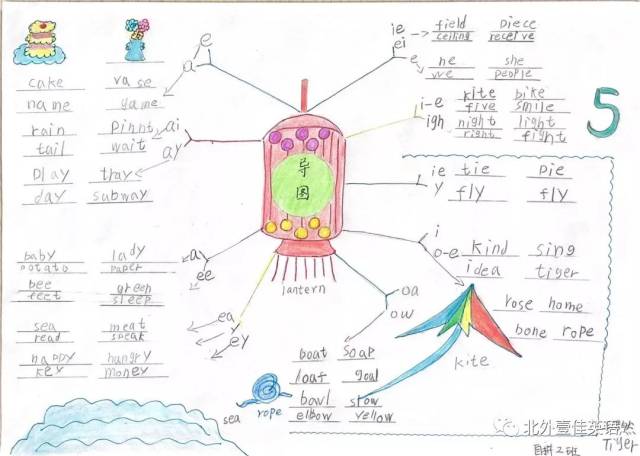 cake vase
name game
rain
tail wait
play tray
day subway
baby lady
potato paper
bee green
feet sleep
sea meat
read speak
happy hungry
key money
a e
ai
ay
ee
ea
y
ey
导
图
lantern
ie
ei
e
field piece
ceiling receive
he she
we people
i-e
igh
kite bike
five smile
night light
right fight
5
ie
y
tie pie
fly fly
i
o-e
kind sing
idea tiger
rose home
bone rope
kite
oa
ow
boat soap
loaf goal
bowl slow
elbow yellow
sea
rope
北外壹佳英语
Tiger